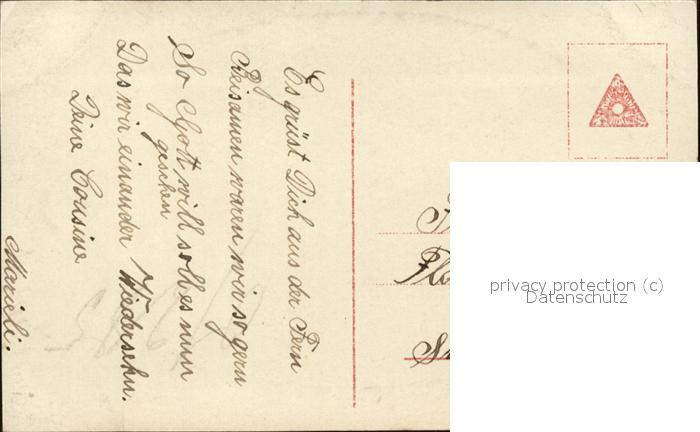 Es grüst Dich aus der Fern
Beisamen waren wir so gern
So Gott will soll es nun
geschen
Das wir einander Wiedersehn.
Deine Cousine
Marieli.
privacy protection (c)
Datenschutz